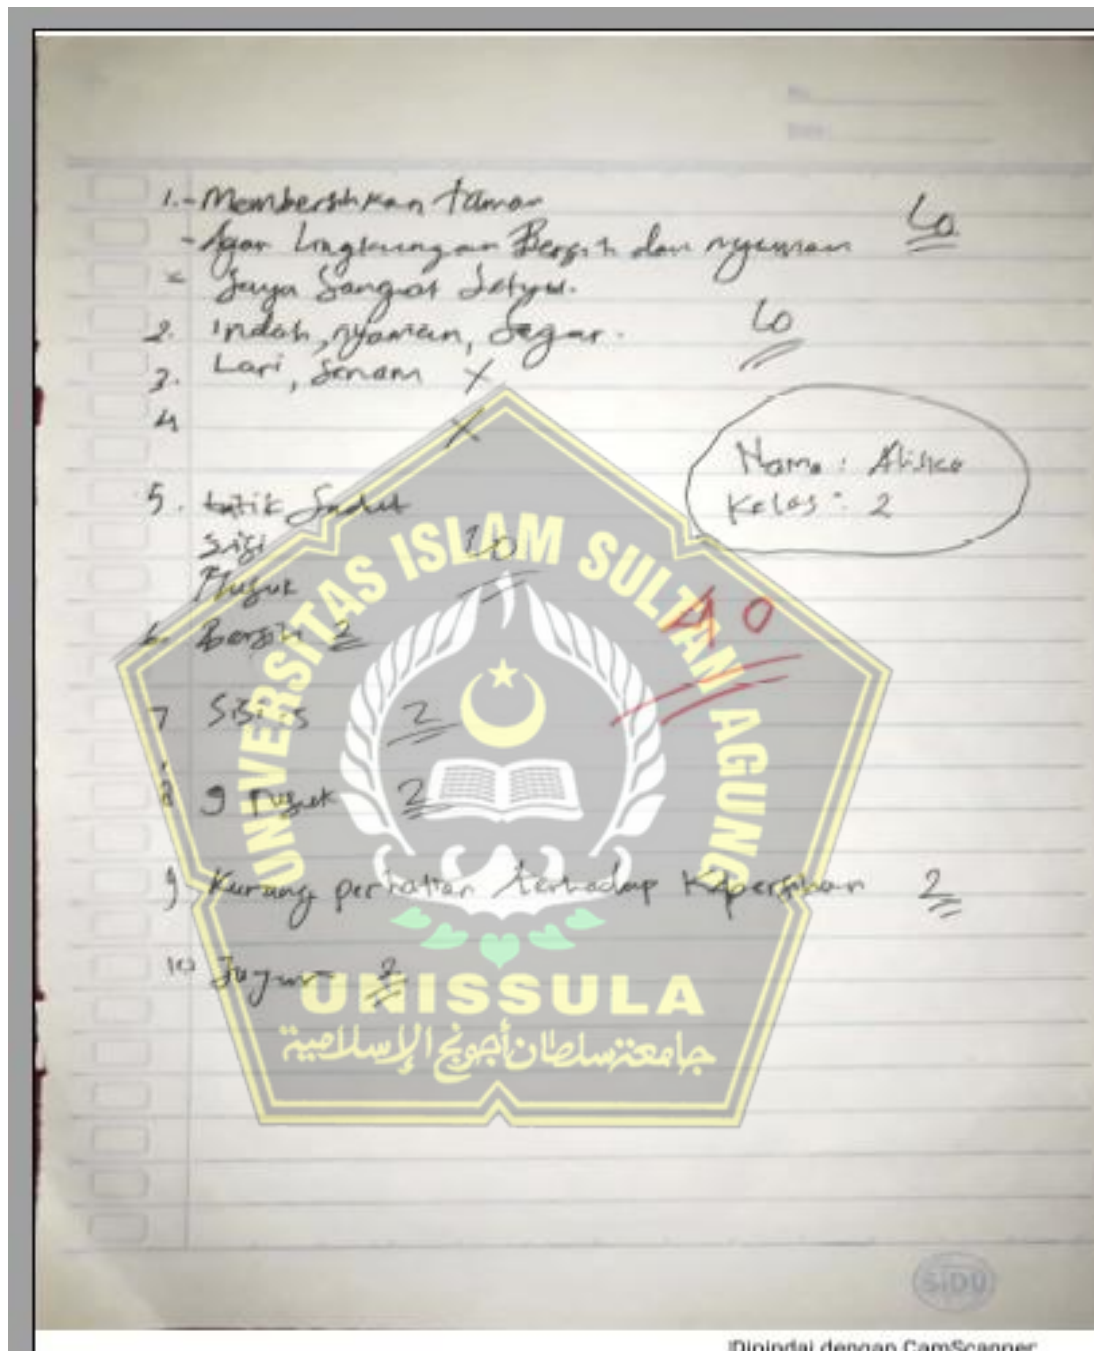 1. - Membersihkan taman
- Agar Lingkungan Bersih dan nyaman 10
= Saya Sangat Setuju.
2. indah, nyaman, Segar. 10
3. Lari, Senam X
4 X
Nama:
Kelas: 2
5. titik Sudut
Sisi 10
Rusuk
40
6. Bersih 2
7 Sisi 2
8 9 rusuk 2
9 Kurang perhatian terhadap Kebersihan 2
10 2
UNIVERSITAS ISLAM SULTAN AGUNG
UNISSULA
جامعة سلطان أجونج الإسلامية
SiDU
Dipindai dengan CamScanner